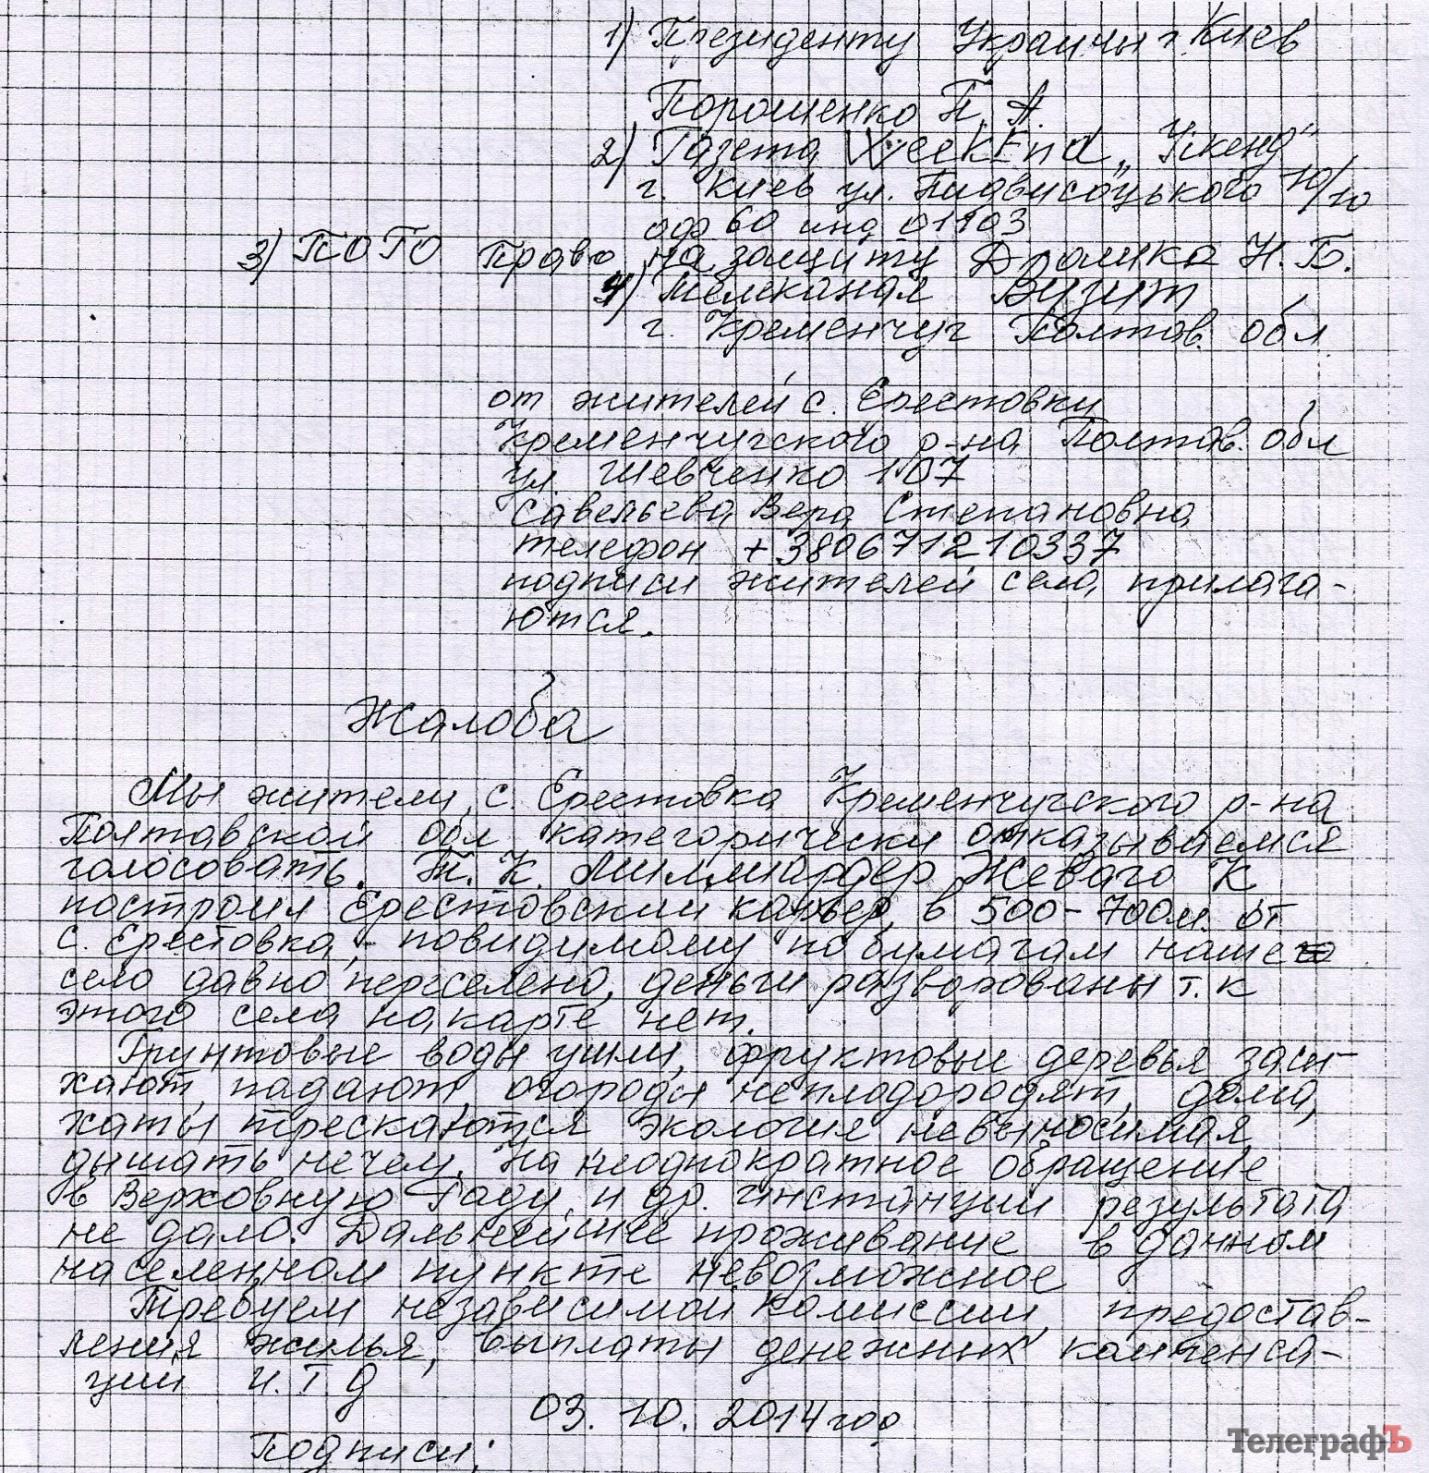 1) Президенту Украины г. Киев
Порошенко П. А.
2) Газета WeekEnd „Уікенд"
г. Киев ул. Пидвисоцького 10/10
оф 60 инд 01103
3) ПОГО Право на защиту Дромика Н. Б.
4) телеканал Визит
г. Кременчуг Полтав. обл
от жителей с. Ерестовки
Кременчугского р-на Полтав. обл
ул. Шевченко 107
Савельева Вера Степановна
телефон +380671210337
подписи жителей села прилага-
ются.
Жалоба
Мы жители с. Ерестовка Кременчугского р-на
Полтавской обл категорически отказываемся
голосовать. Т. К. миллиардер Жеваго К
построил Ерестовский карьер в 500-700м. от
с. Ерестовка, - повидимому по бумагам наше
село давно переселено, деньги разворованы т. к
этого села на карте нет.
Грунтовые воды ушли, фруктовые деревья засы-
хают, падают, огороды неплодородят, дома,
хаты трескаются экология невыносимая
дышать нечем. На неоднократное обращение
в Верховную Раду и др. инстанции результата
не дало. Дальнейшее проживание в данном
населенном пункте невозможное
Требуем независимой комиссии, предостав-
ления жилья, выплаты денежных компенса-
ции и. т. д
03. 10. 2014 год
Подписи:
ТелеграфЪ